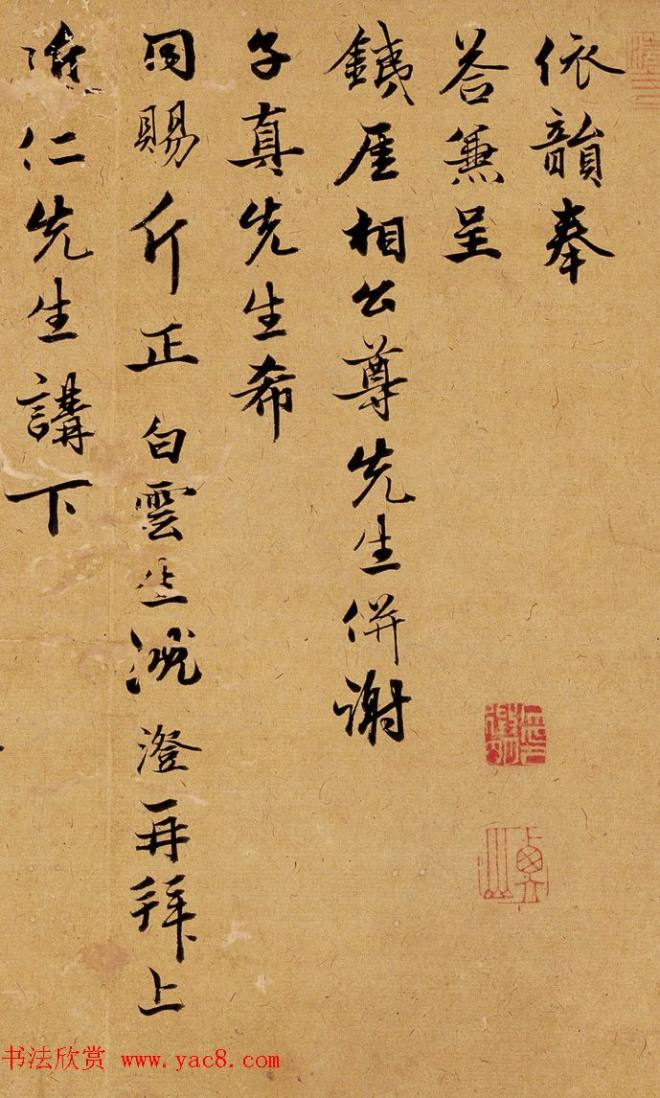 依韻奉
答兼呈
鐵厓相公尊先生併謝
子真先生希
同賜斤正 白雲生 澄再拜上
仁先生講下
书法欣赏 www.yac8.com